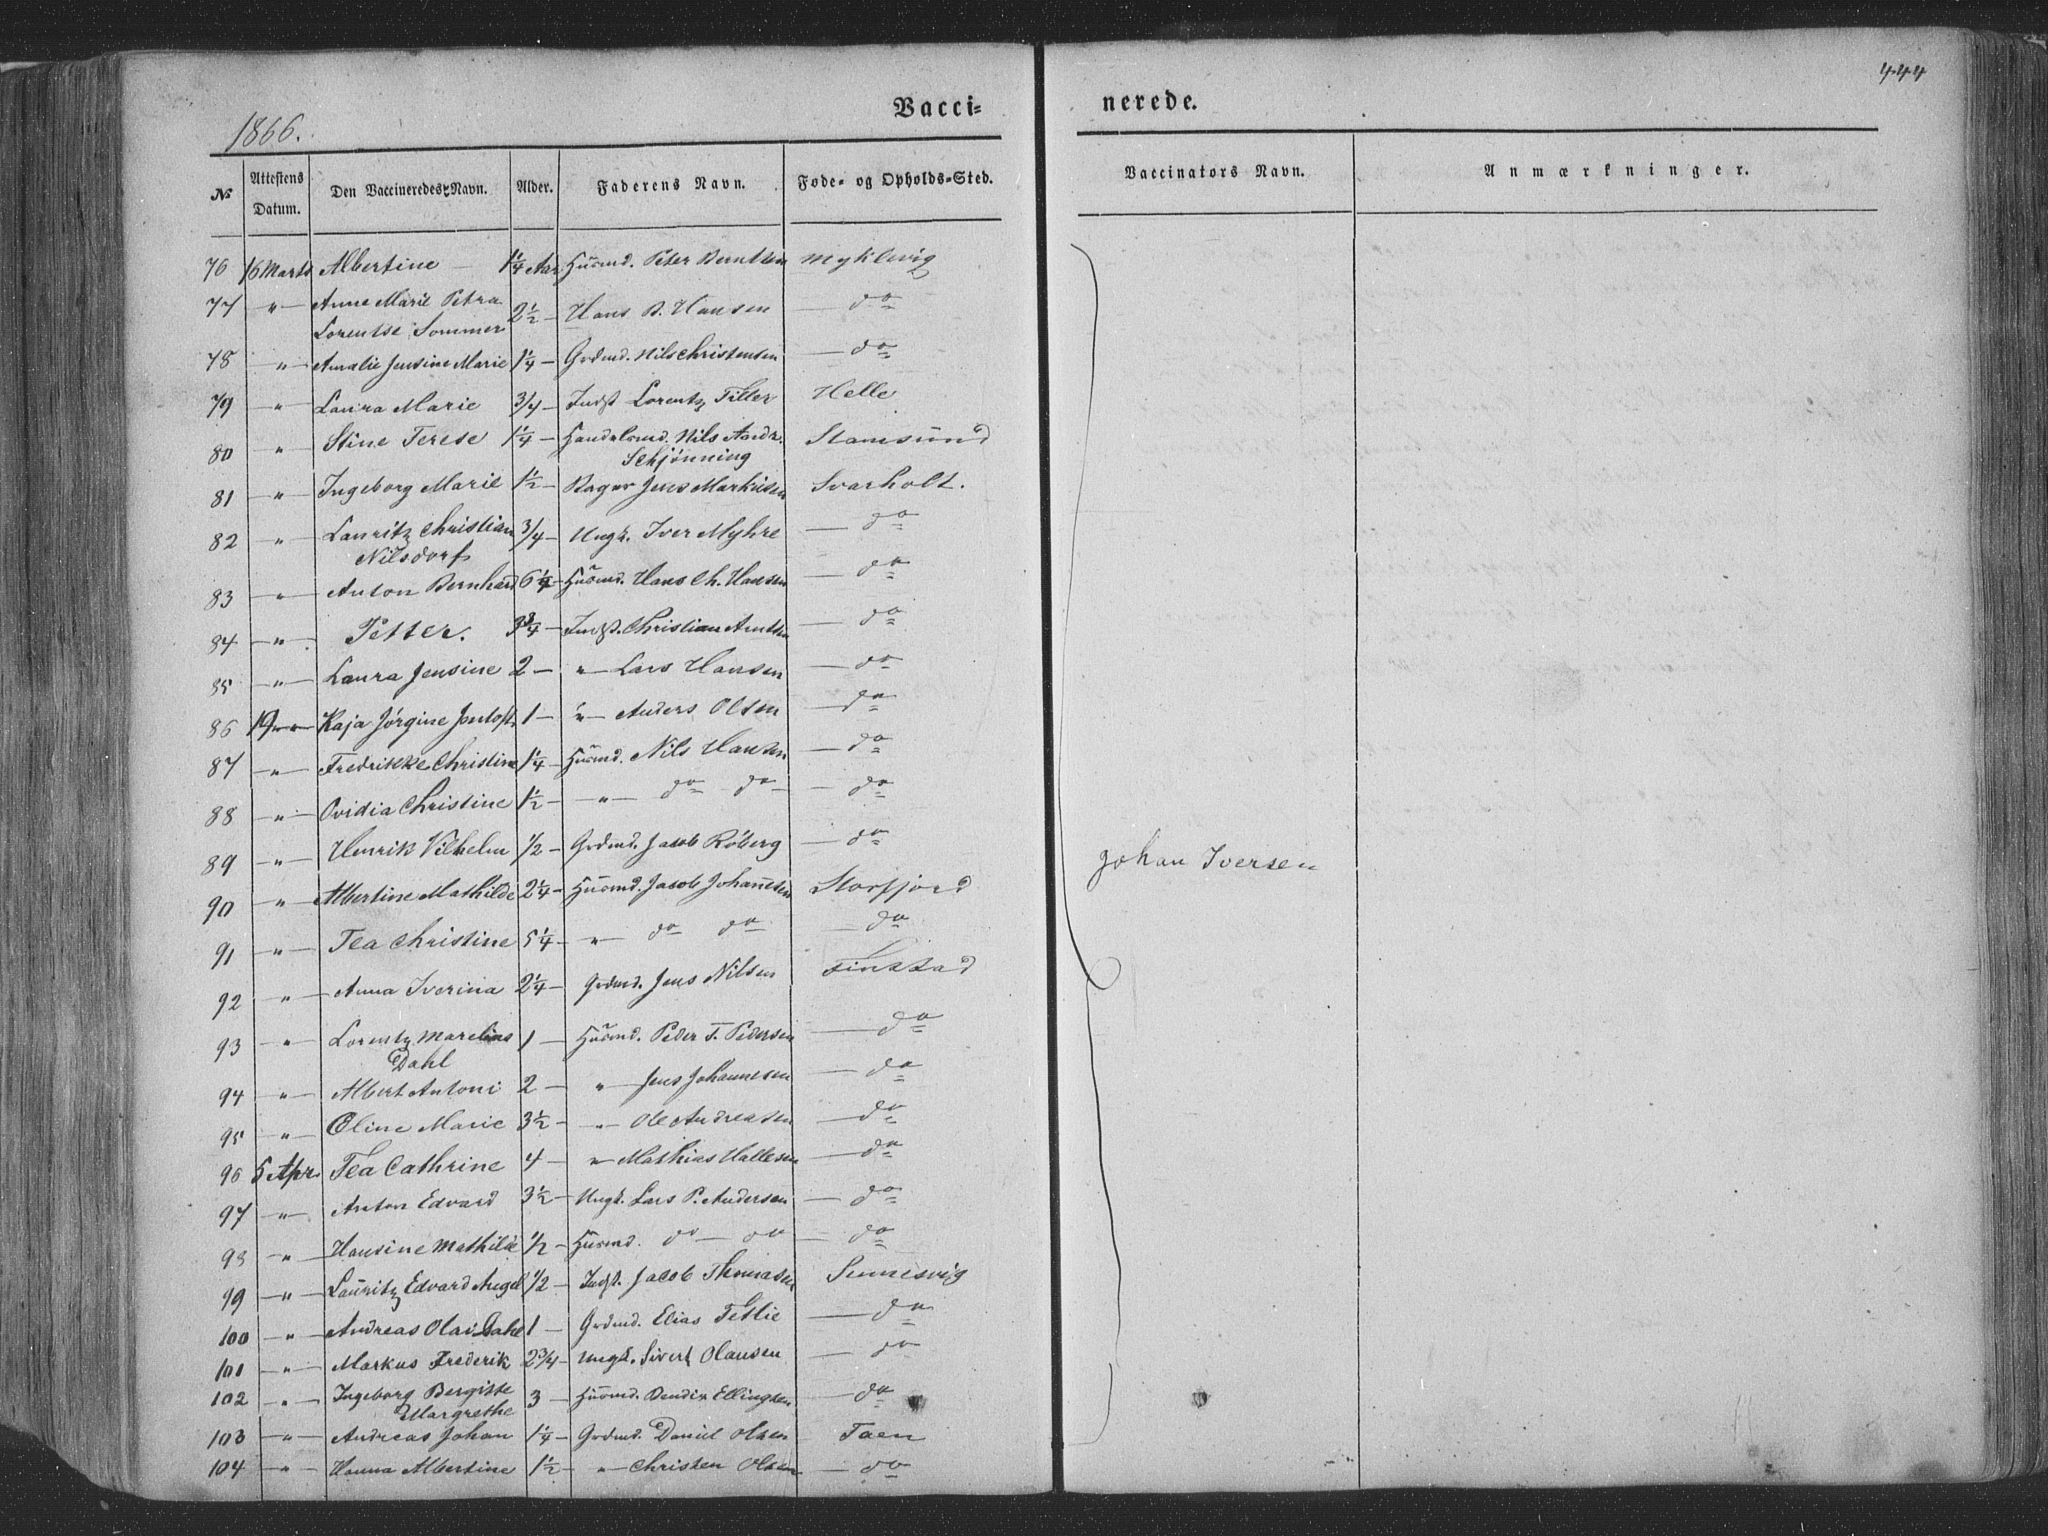 444
1866.
Vacci= nerede.
No Attestens Datum. Den Vaccineredes Navn. Alder. Faderens Navn. Føde= og Opholds=Sted. Vaccinators Navn. Anmærkninger.
76 16 Marts Albertine — 1 1/4 Aar Huusmd. Peter Berntsen Myklevig
77 " Anne Marie Petra
Lorentse Sommer 2 1/2 — Hans B. Hansen — do
78 " Amalie Jensine Marie 1 1/4 — Grdmd. Nils Christensen — do
79 " Laura Marie 3/4 — Indst Lorentz Tiller Helle
80 " Stine Terese 1 1/4 — Handelsmd. Nils Andr.
Schjønning Stamsund
81 " Ingeborg Marie 1 1/2 — Bager Jens Markusen Svarholt.
82 " Lauritz Christian
Nilsdorf 3/4 — Ungk. Iver Myhre — do
83 " Anton Bernhard 6 1/4 — Huusmd. Hans Ch. Hansen — do
84 " Petter. 3/4 — Indst. Christian Arntsen — do
85 " Laura Jensine 2 — " Lars Hansen — do
86 19 " Kaja Jørgine 1 — " Anders Olsen — do
87 " Fredrikke Christine 1 1/4 — Huusmd. Nils Hansen — do
88 " Ovidia Christine 1 1/2 — " do do — do
89 " Henrik Vilhelm 1/2 — Grdmd. Jacob Röberg — do
90 " Albertine Mathilde 2 1/4 — Huusmd. Jacob Johannesen Storfjord
91 " Tea Christine 5 1/4 — " do do — do
92 " Anna Iverina 2 1/4 — Grdmd. Jens Nilsen Finstad
93 " Lorentz Marelius
Dahl 1 — Huusmd. Peder T. Pedersen — do
94 " Albert Antoni 2 — " Jens Johannesen — do
95 " Oline Marie 3 1/2 — " Ole Andreasen — do
96 5 Apr. Tea Cathrine 4 — " Mathias Hallesen — do
97 " Anton Edvard 3 1/2 — Ungk. Lars P. Andersen — do
98 " Hansine Mathilde 1/2 — Huusmd. do — do — do
99 " Lauritz Edvard Angel 1/2 — Indst. Jacob Thomasen Sennesvig
100 " Andreas Olai Dahl 1 — Grdmd. Elias Tetlie — do
101 " Markus Frederik 2 3/4 — Ungk. Sivert Olausen — do
102 " Ingeborg Bergitte
Margrethe 3 — Huusmd. Bendix Ellingsen — do
103 " Andreas Johan 1 1/4 — Grdmd. Daniel Olsen Taen
104 " Hanna Albertine 1 1/2 — " Christen Olsen — do
Johan Iversen